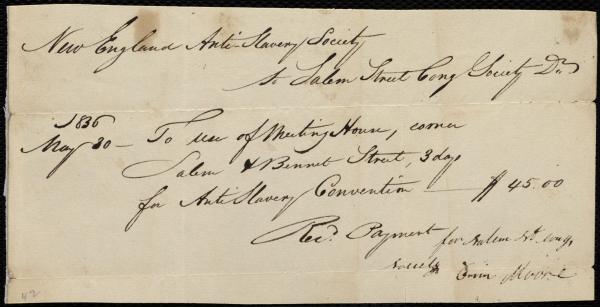 New England Anti-Slavery Society
to Salem Street Cong Society Dr
1836
May 30 — To use of Meeting House, corner
Salem & Bennet Street, 3 days
for Anti Slavery Convention — $45.00
Recd. Payment for Salem St. Cong.
Society Moore
42